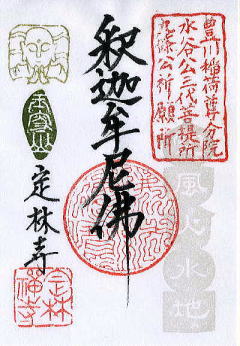 豊川稲荷尊分院
水谷公三代菩提所
九條公祈願所
釈迦牟尼佛
風火水地
定林寺
定林禅寺